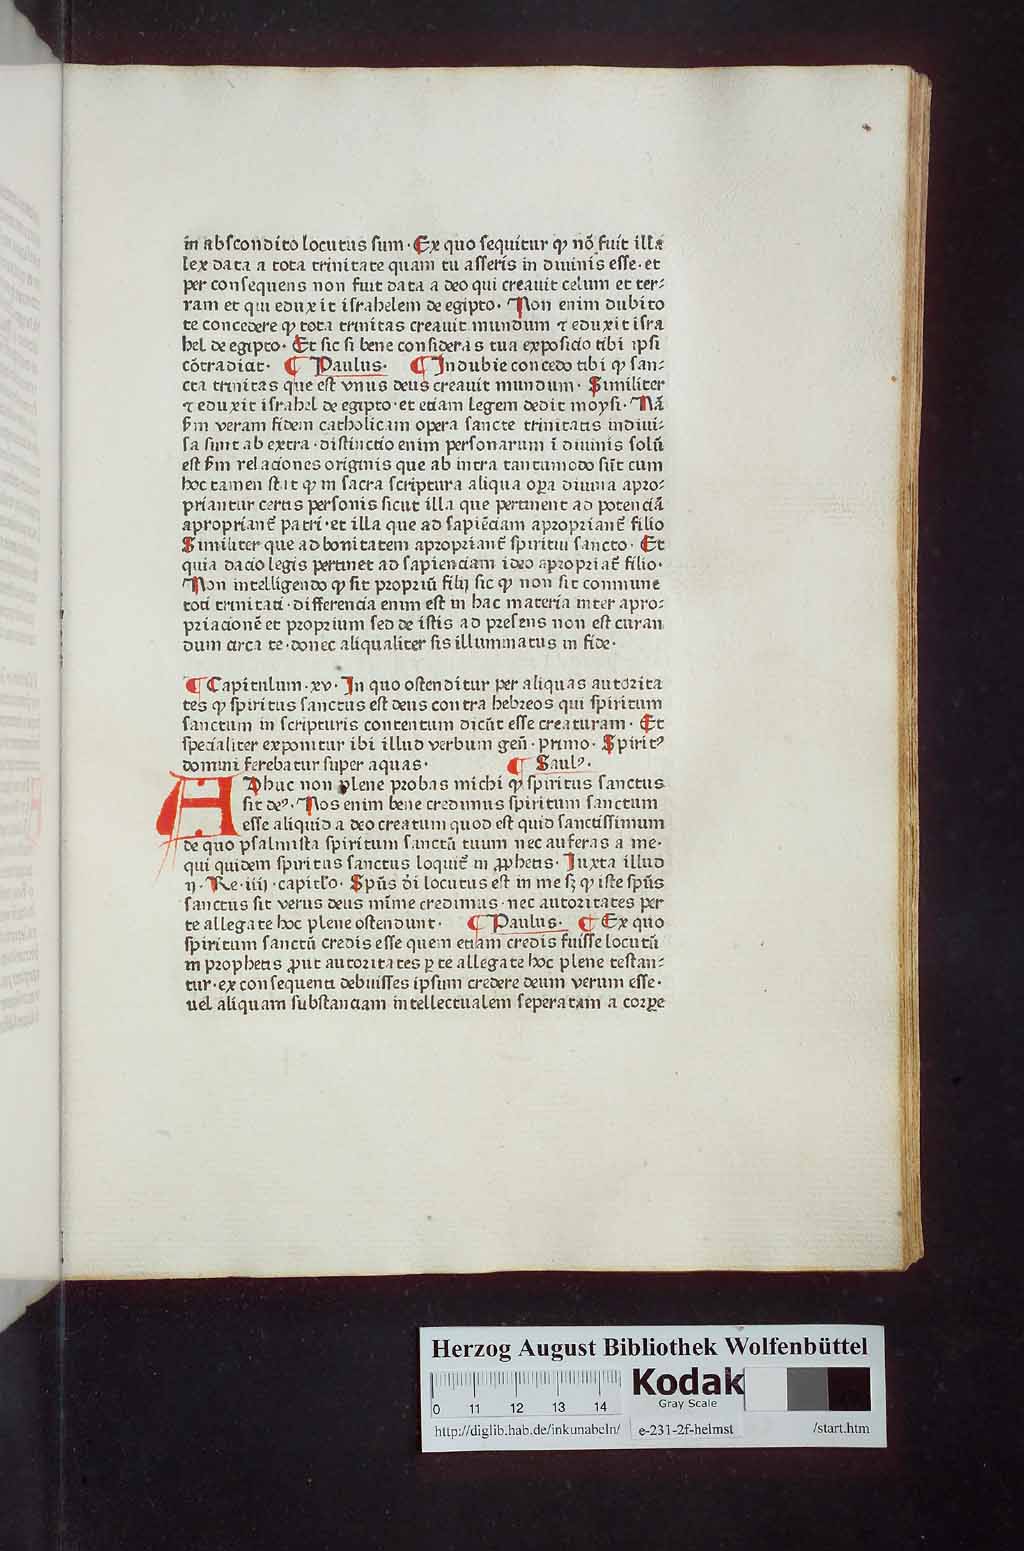 in abscondito locutus sum · Ex quo sequitur ꝙ nō fuit illa
lex data a tota trinitate quam tu asseris in diuinis esse · et
per consequens non fuit data a deo qui creauit celum et ter⸗
ram et qui eduxit israhelem de egipto · Non enim dubito
te concedere ꝙ tota trinitas creauit mundum ⁊ eduxit isra
hel de egipto · Et sic si bene consideras tua exposicio tibi ipsi
cōtradicit · ¶ Paulus · ¶ Indubie concedo tibi ꝙ san⸗
cta trinitas que est vnus deus creauit mundum · Similiter
⁊ eduxit israhel de egipto · et etiam legem dedit moysi · Nā
ẜm veram fidem catholicam opera sancte trinitatis indiui⸗
sa sunt ab extra · distinctio enim personarum ī diuinis solū
est ẜm relaciones originis que ab intra tantumodo sūt cum
hoc tamen stat ꝙ in sacra scriptura aliqua oꝑa diuina apro⸗
priantur certis personis sicut illa que pertinent ad potenciā
apropriant᷑ patri · et illa que ad sapiēciam apropriant᷑ filio
Similiter que ad bonitatem apropriant᷑ spiritui sancto · Et
quia dacio legis pertinet ad sapienciam ideo apropriat᷑ filio ·
Non intelligendo ꝙ sit propriū filij sic ꝙ non sit commune
toti trinitati · differencia enim est in hac materia inter apro⸗
priacionē et proprium sed de istis ad presens non est curan
dum circa te · donec aliqualiter sis illuminatus in fide ·
¶ Capitulum · xv · In quo ostenditur per aliquas autorita
tes ꝙ spiritus sanctus est deus contra hebreos qui spiritum
sanctum in scripturis contentum dicūt esse creaturam · Et
specialiter exponitur ibi illud verbum geñ · primo · Spiritꝰ
domini ferebatur super aquas · ¶ Saulꝰ ·
Adhuc non plene probas michi ꝙ spiritus sanctus
sit deꝰ · Nos enim bene credimus spiritum sanctum
esse aliquid a deo creatum quod est quid sanctissimum
de quo psalmista spiritum sanctū tuum nec auferas a me ·
qui quidem spiritus sanctus loquit᷑ in ꝓphetis · Iuxta illud
ij · Re · iiij · capitl’o · Spūs dñi locutus est in me sꝫ ꝙ iste spūs
sanctus sit verus deus mīme credimus · nec autoritates per
te allegate hoc plene ostendunt · ¶ Paulus · ¶ Ex quo
spiritum sanctū credis esse quem etiam credis fuisse locutū
in prophetis ꝓut autoritates ꝑ te allegate hoc plene testan⸗
tur · ex consequenti debuisses ipsum credere deum verum esse ·
uel aliquam substanciam intellectualem seperatam a corꝑe
Herzog August Bibliothek Wolfenbüttel
0 11 12 13 14
Kodak
Gray Scale
http://diglib.hab.de/inkunabeln/ e-231-2f-helmst /start.htm